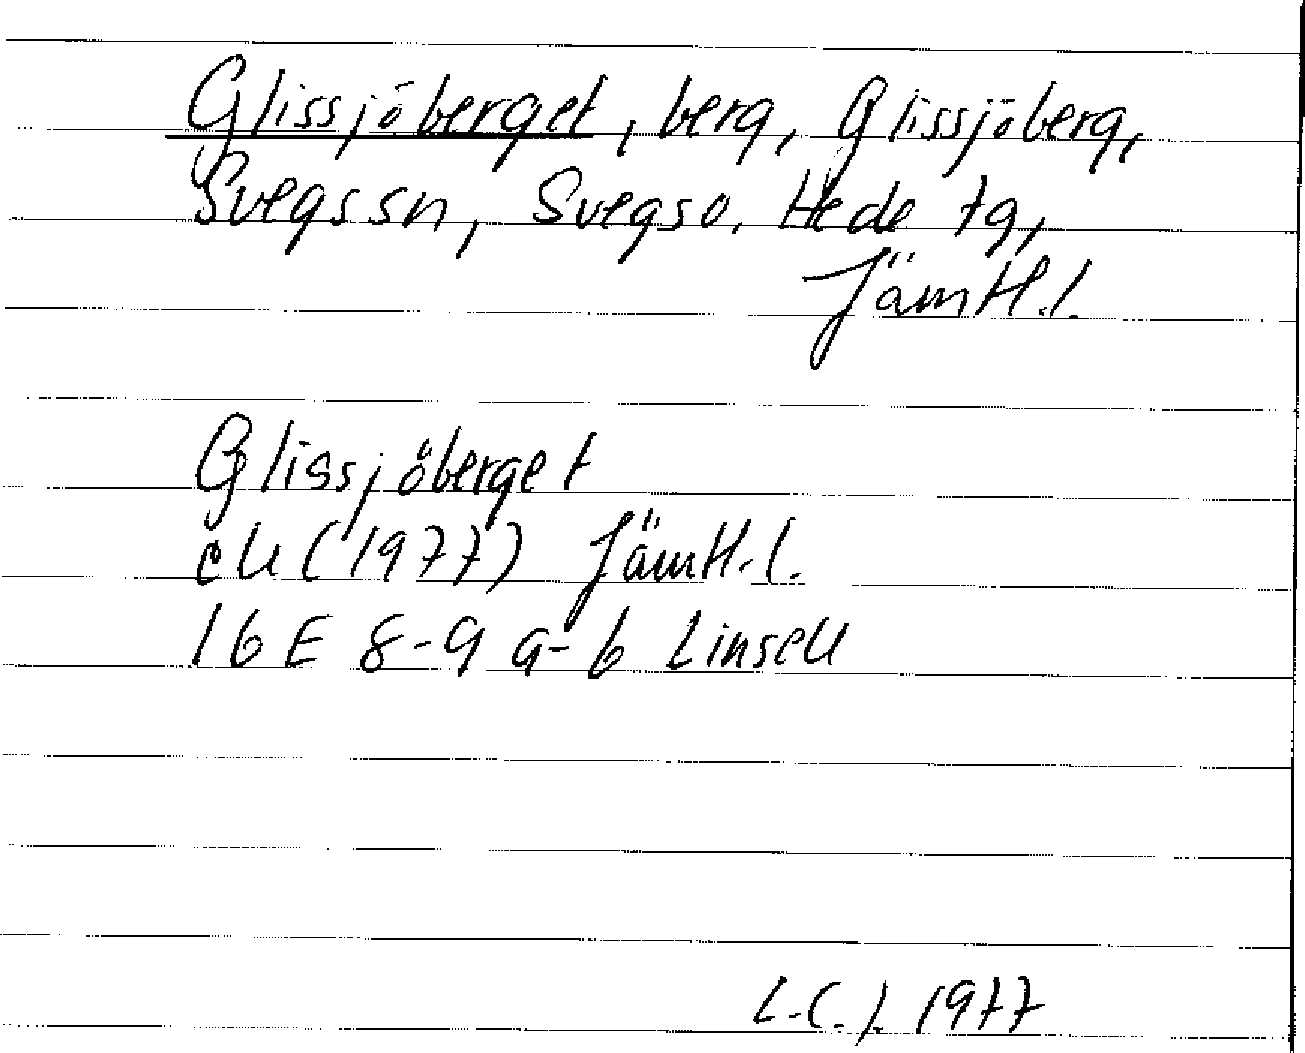 Glissjöberget, berg, Glissjöberg,
Svegs sn, Svegs o. Hede tg,
Jämtl. l.
Glissjöberget
ek (1977) Jämtl. l.
16 E 8-9 a-b Linsell
L.C.J. 1977